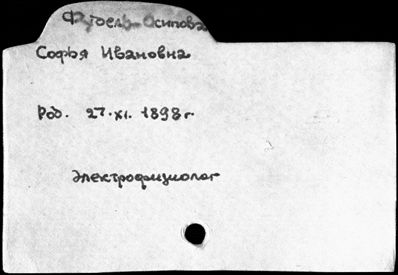 Фудель-Осипова
Софья Ивановна
Род. 27.XI. 1898 г.
Электрофизиолог